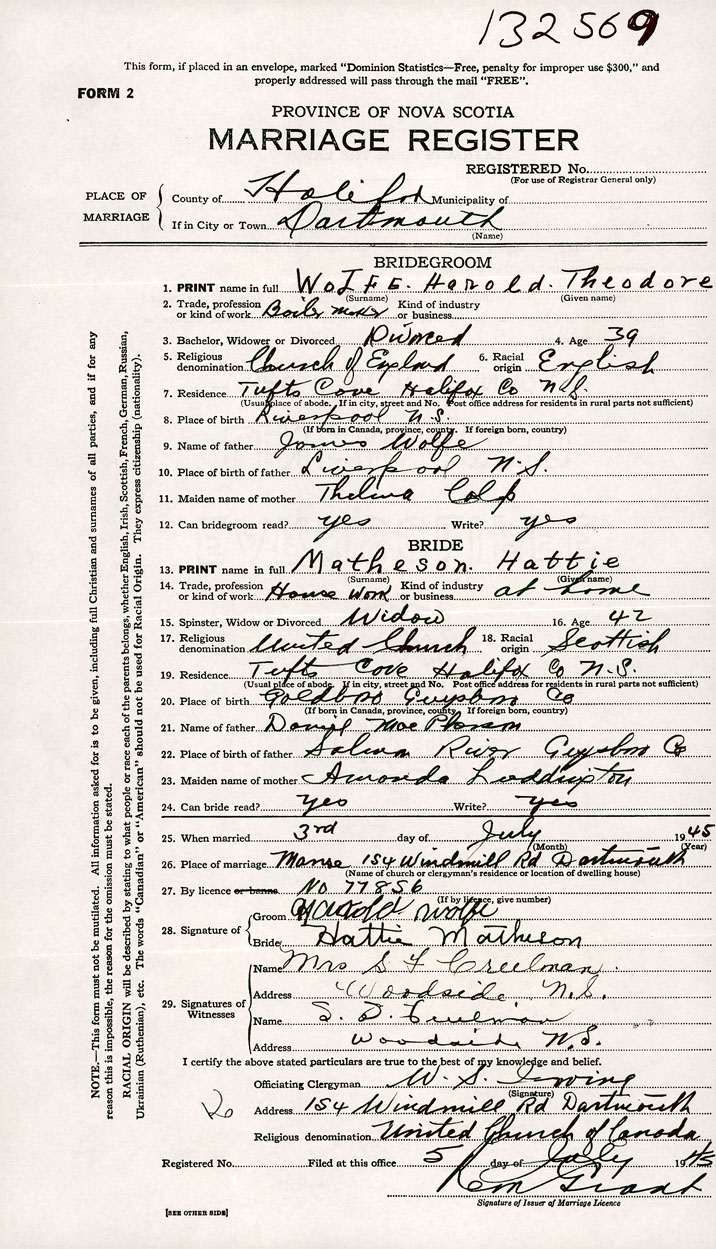 132569
This form, if placed in an envelope, marked "Dominion Statistics—Free, penalty for improper use $300," and
properly addressed will pass through the mail "FREE".
FORM 2
PROVINCE OF NOVA SCOTIA
MARRIAGE REGISTER
REGISTERED No.
(For use of Registrar General only)
PLACE OF MARRIAGE
County of Halifax Municipality of
If in City or Town Dartmouth
(Name)
BRIDEGROOM
1. PRINT name in full WOLFE. Harold. Theodore
(Surname) (Given name)
2. Trade, profession or kind of work Boiler maker Kind of industry or business
3. Bachelor, Widower or Divorced Divorced 4. Age 39
5. Religious denomination Church of England 6. Racial origin English
7. Residence Tufts Cove Halifax Co N.S.
(Usual place of abode. If in city, street and No. Post office address for residents in rural parts not sufficient)
8. Place of birth Liverpool N.S.
(If born in Canada, province, county. If foreign born, country)
9. Name of father James Wolfe
10. Place of birth of father Liverpool N.S.
11. Maiden name of mother Thelma Colp
12. Can bridegroom read? yes Write? yes
BRIDE
13. PRINT name in full Matheson. Hattie
(Surname) (Given name)
14. Trade, profession or kind of work House Work Kind of industry or business at home
15. Spinster, Widow or Divorced Widow 16. Age 42
17. Religious denomination United Church 18. Racial origin Scottish
19. Residence Tufts Cove Halifax Co N.S.
(Usual place of abode. If in city, street and No. Post office address for residents in rural parts not sufficient)
20. Place of birth Goldboro Guysboro Co
(If born in Canada, province, county. If foreign born, country)
21. Name of father Daniel MacPherson
22. Place of birth of father Salmon River Guysboro Co
23. Maiden name of mother Amanda Luddington
24. Can bride read? yes Write? yes
25. When married 3rd day of July 1945
(Month) (Year)
26. Place of marriage Manse 154 Windmill Rd Dartmouth
(Name of church or clergyman's residence or location of dwelling house)
27. By licence or banns No 77856
(If by licence, give number)
28. Signature of
Groom Harold Wolfe
Bride Hattie Matheson
29. Signatures of Witnesses
Name Mrs S F Creelman
Address Woodside N.S.
Name S. F. Creelman
Address Woodside N.S.
I certify the above stated particulars are true to the best of my knowledge and belief.
Officiating Clergyman W. S. Irving
(Signature)
Address 154 Windmill Rd Dartmouth
Religious denomination United Church of Canada
Registered No. Filed at this office 5 day of July 1945
Grant
Signature of Issuer of Marriage Licence
[SEE OTHER SIDE]
NOTE.—This form must not be mutilated. All information asked for is to be given, including full Christian and surnames of all parties, and if for any
reason this is impossible, the reason for the omission must be stated.
RACIAL ORIGIN will be described by stating to what people or race each of the parents belongs, whether English, Irish, Scottish, French, German, Russian,
Ukrainian (Ruthenian), etc. The words "Canadian" or "American" should not be used for Racial Origin. They express citizenship (nationality).